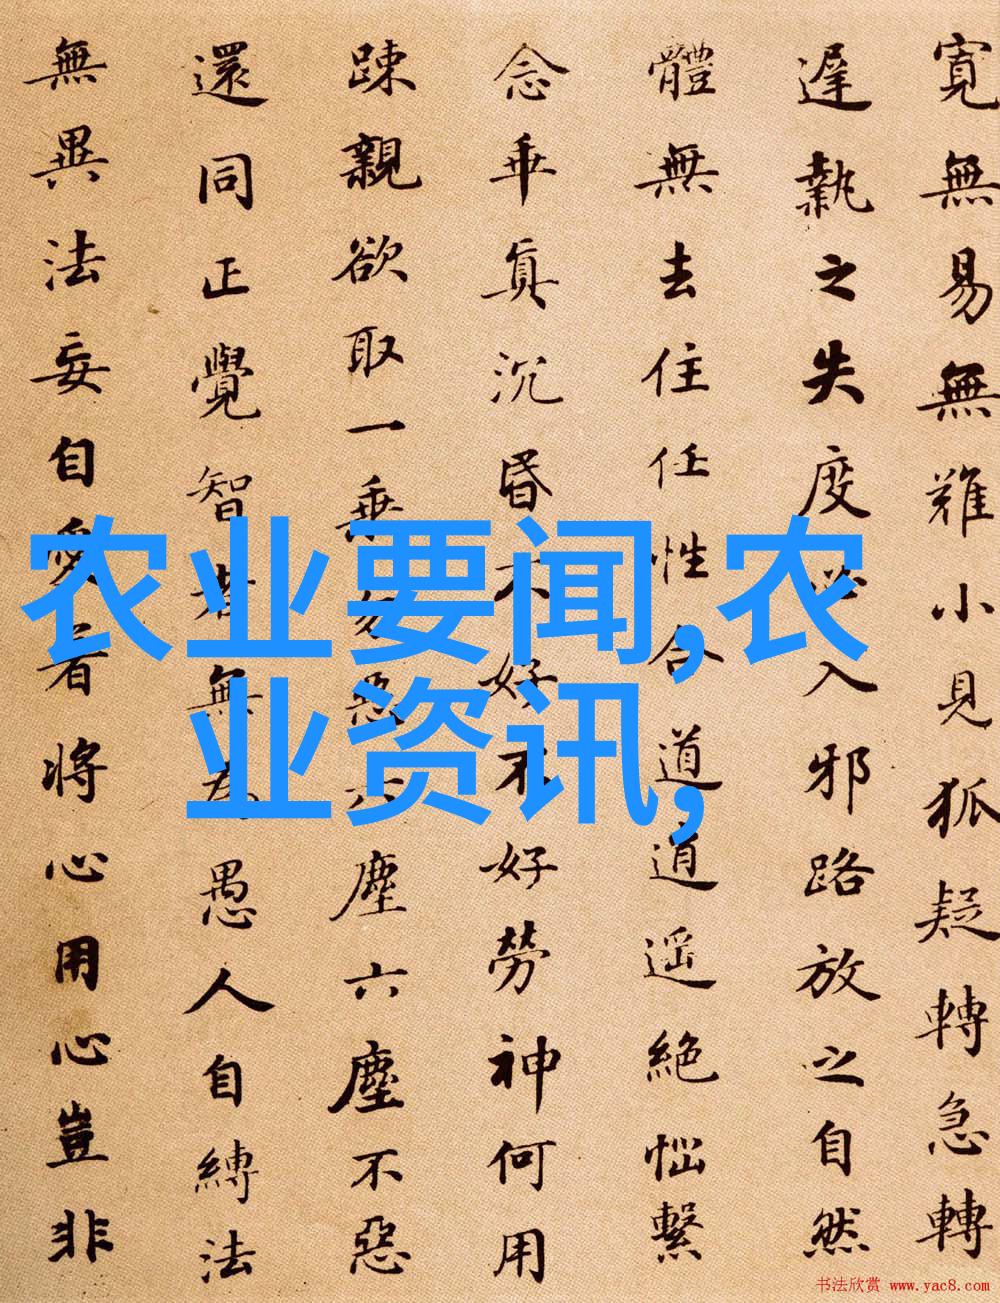 寛無易無難小見狐疑轉急轉
遲執之失度必入邪路放之自然
體無去住任性合道逍遥絶惱繫
念乖真沉昏不好不好勞神何用
踈親欲取一乗勿惡六塵六塵不惡
還同正覺智者無為愚人自縛法
無異法妄自愛着將心用心豈非
农业要闻,农
业资讯,
书法欣赏 www.yac8.com